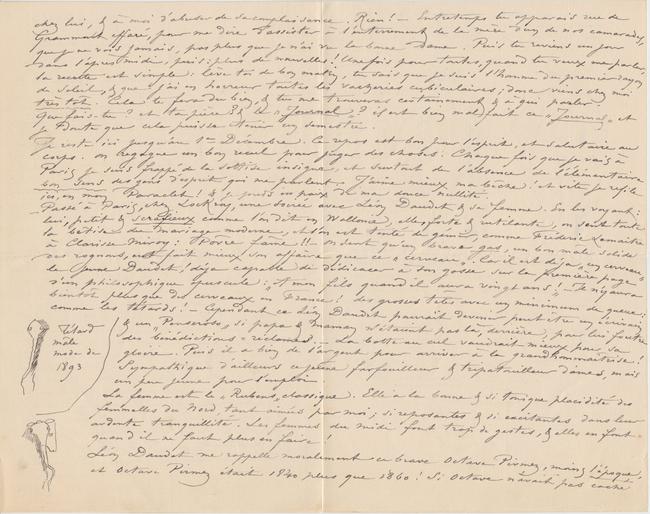 chez lui, & à moi d'abuser de sa complaisance. Rien! – Entretemps tu apparais rue de
Grammont effaré, pour me dire d'assister à l'enterrement de la mère d'un de nos camarades,
que je ne vois jamais, pas plus que je n'ai vu la bonne dame. Puis tu reviens un jour
dans l'après midi, puis: plus de nouvelles! Une fois pour toutes, quand tu veux me parler,
la recette est simple: lève toi de bon matin, tu sais que je suis l'homme du premier rayon
de soleil, & que j'ai en horreur toutes les vacheries cubiculaires; donc viens chez moi
très tôt. Cela te fera du bien, & tu me trouveras certainement & à qui parler.
Que fais-tu? et ta pièce? & le « Journal »? il est bien mal fait ce « Journal » et
je doute que cela puisse tenir un semestre.
Je reste ici jusqu'au 1er Décembre. Le repos est bon pour l'esprit, et salutaire au
corps. on regagne un bon recul pour juger des choses. Chaque fois que je vais à
Paris je suis frappé de la sottise insigne, et surtout de l'absence de l'élémentaire
bon sens des gens d'esprit qui me parlent. J'aime mieux ma bêche! et vite je refile
ici, en mon & je jouis en paix de ma douce nullité.
Passé à Paris, chez Lockroy, une soirée avec Léon Daudet & sa femme. En les voyant:
lui, petit & comme l'on dit en Wallonie, elle, forte & rutilante, on sent toute
la bêtise du mariage moderne, et l'on est tenté de gémir, comme Frédéric Lemaître
à Clarisse Miroy: « Povre fâme »!! – on sent qu'un brave gas, un bon mâle solide
des rognons, eut fait mieux son affaire que ce « cerveau ». Car il est déjà « un cerveau »
le jeune Daudet, déjà capable de dédicacer à son gosse sur la première page
d'un philosophique opuscule: « A mon fils quand il aura vingt ans! » – Il n'y aura
bientôt plus que des cerveaux en France! des grosses têtes avec un minimum de queue:
comme les têtards. – Cependant ce Léon Daudet pourrait devenir peut être un écrivain
& un Penseroso, si papa & maman n'étaient pas là, derrière, pour lui foutre
des bénédictions « réclames ». – La botte au cul vaudrait mieux pour sa
gloire. Puis il a bien de l'argent pour arriver à la grande maîtrise!
Sympathique d'ailleurs ce jeune farfouilleur & tripatouilleur d'âmes, mais
un peu jeune pour l'emploi.
Têtard
mâle
mode de
1893
La femme est le « Rubens » classique. Elle a la bonne & si tonique placidité des
femelles du Nord, tant aimées par moi; si reposantes & si excitantes dans leur
ardente tranquillité. Les femmes du midi font trop de gestes, & elles en font
quand il ne faut plus en faire!
Léon Daudet me rappelle moralement ce brave Octave Pirmez, moins l'époque,
et Octave Pirmez était 1840 plus que 1860! Si Octave n'avait pas caché